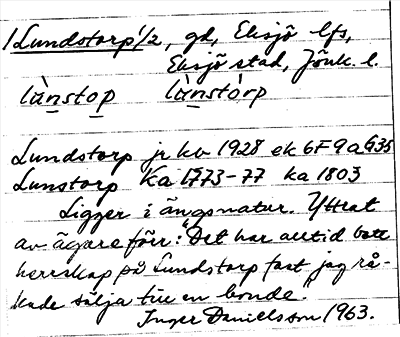 1 Lundstorp 1/2, gd, Eksjö lfs,
Eksjö stad, Jönk. l.
lànstop lànstòrp
Lundstorp jr kv 1928 ek 6F9a G35
Lunstorp Ka 1773-77 ka 1803
Ligger i ängsnatur. Yttrat
av ägare förr: "Det har alltid bott
herrskap på Lundstorp fast jag rå-
kade sälja till en bonde."
Inger Danielsson 1963.